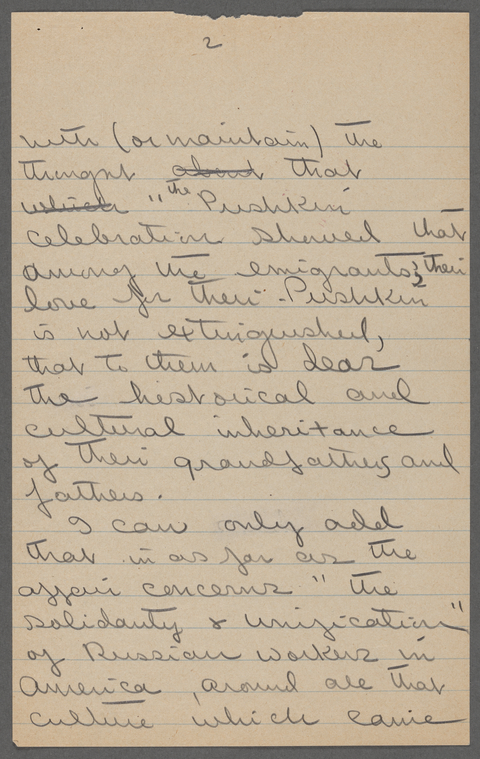 2
with (or maintain) the
thought about that
which "the Pushkin
celebration showed that
among the emigrants, their
love for their Pushkin
is not extinguished,
that to them is dear
the historical and
cultural inheritance
of their grandfathers and
fathers.
I can only add
that in as far as the
affair concerns "the
solidarity & unification"
of Russian workers in
America, around all that
culture which came